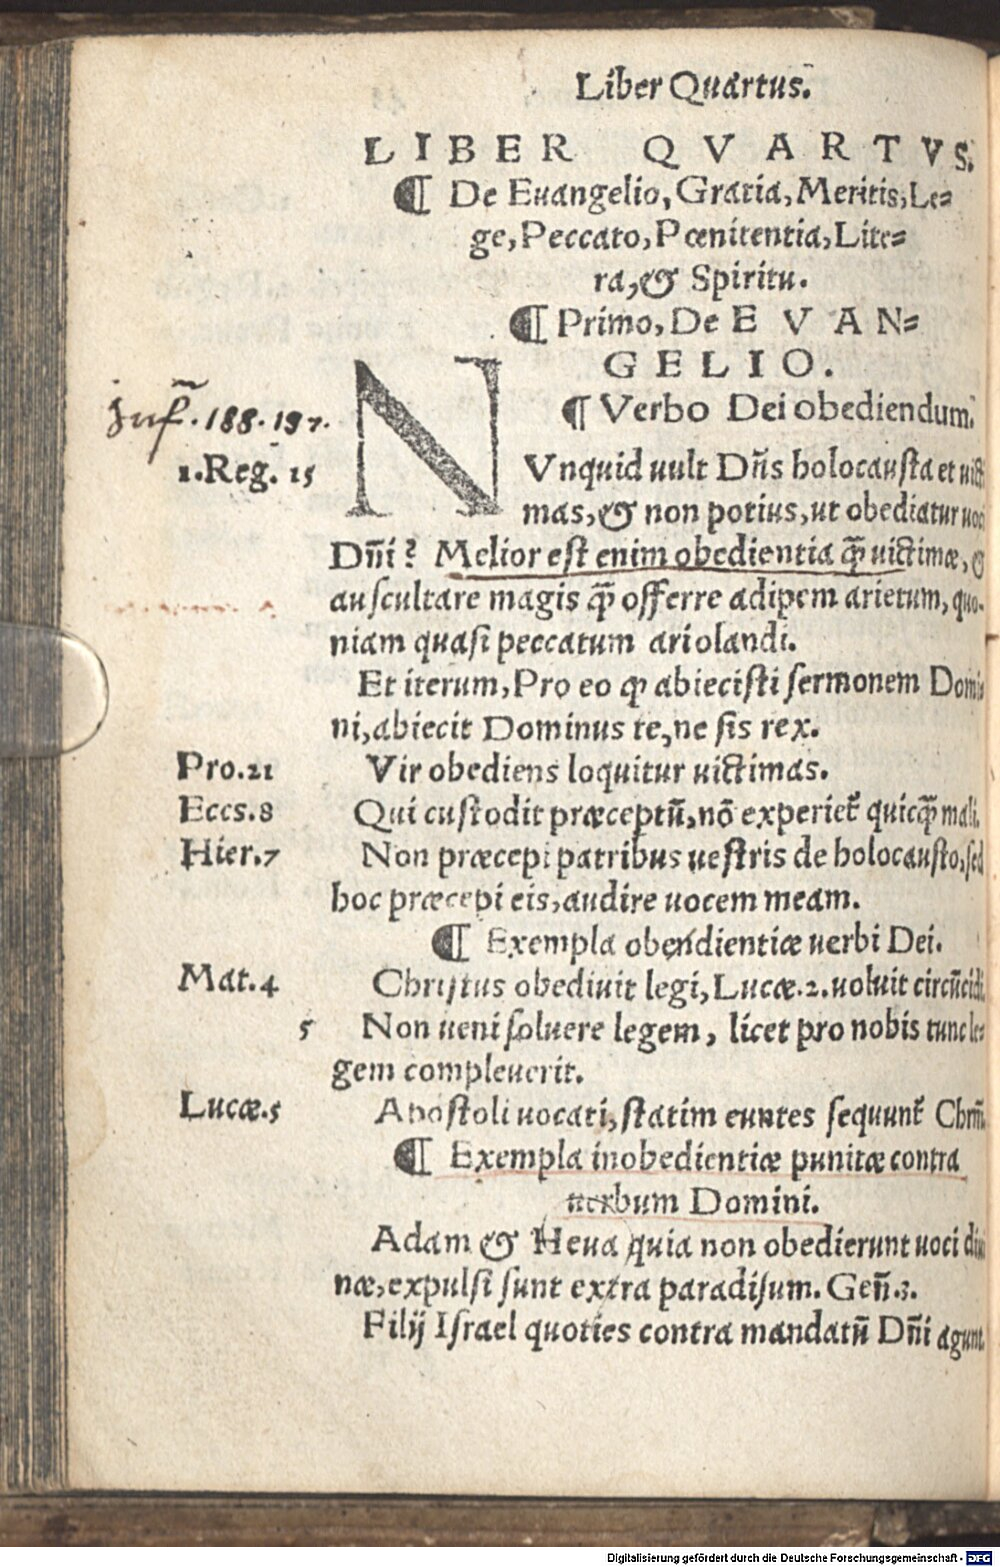 Liber Quartus.
LIBER QVARTVS.
¶ De Euangelio, Gratia, Meritis, Le=
ge, Peccato, Pœnitentia, Lite=
ra, & Spiritu.
¶ Primo, De EVAN=
GELIO.
¶ Verbo Dei obediendum.
Inf. 188. 197.
1.Reg. 15
NVnquid uult Dn̄s holocausta et uicti
mas, & non potius, ut obediatur uoci
Dn̄i? Melior est enim obedientia q̄ uictimæ, &
auscultare magis q̄ offerre adipem arietum, quo-
niam quasi peccatum ariolandi.
Et iterum, Pro eo ꝙ abiecisti sermonem Domi
ni, abiecit Dominus te, ne sis rex.
Pro.21 Vir obediens loquitur uictimas.
Eccs.8 Qui custodit præceptū, nō experiet̃ quicq̄ mali.
Hier.7 Non præcepi patribus uestris de holocausto, sed
hoc præcepi eis, audire uocem meam.
¶ Exempla obendientiæ uerbi Dei.
Mat.4 Christus obediuit legi, Lucæ.2. uoluit circūcidi
5 Non ueni soluere legem, licet pro nobis tunc le=
gem compleuerit.
Lucæ.5 Apostoli uocati, statim euntes sequunt̃ Chrm̄.
¶ Exempla inobedientiæ punitæ contra
uerbum Domini.
Adam & Heua quia non obedierunt uoci diui
næ, expulsi sunt extra paradisum. Gen̄.3.
Filij Israel quoties contra mandatū Dn̄i agunt.
Digitalisierung gefördert durch die Deutsche Forschungsgemeinschaft - DFG